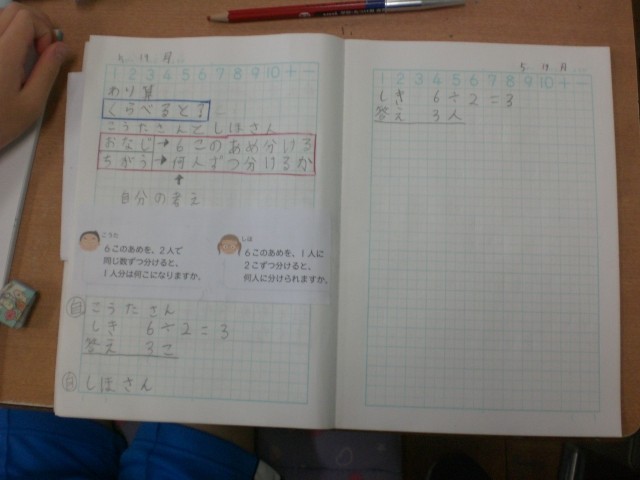 5 19 月
1 2 3 4 5 6 7 8 9 10 + −
わり算
くらべると
こうたさんとしほさん
おなじ→6このあめ分ける
ちがう→何人ずつ分けるか
↑
自分の考え
こうた
6このあめを、2人で
同じ数ずつ分けると、
1人分は何こになりますか。
しほ
6このあめを、1人に
2こずつ分けると、
何人に分けられますか。
自 こうたさん
しき 6÷2=3
答え 3こ
自 しほさん
5 19 月
1 2 3 4 5 6 7 8 9 10 +
しき 6÷2=3
答え 3人